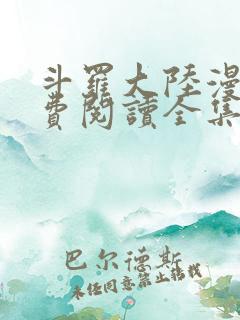 斗羅大陸漫
費閱讀全集
巴尔德斯
未经同意禁止转载